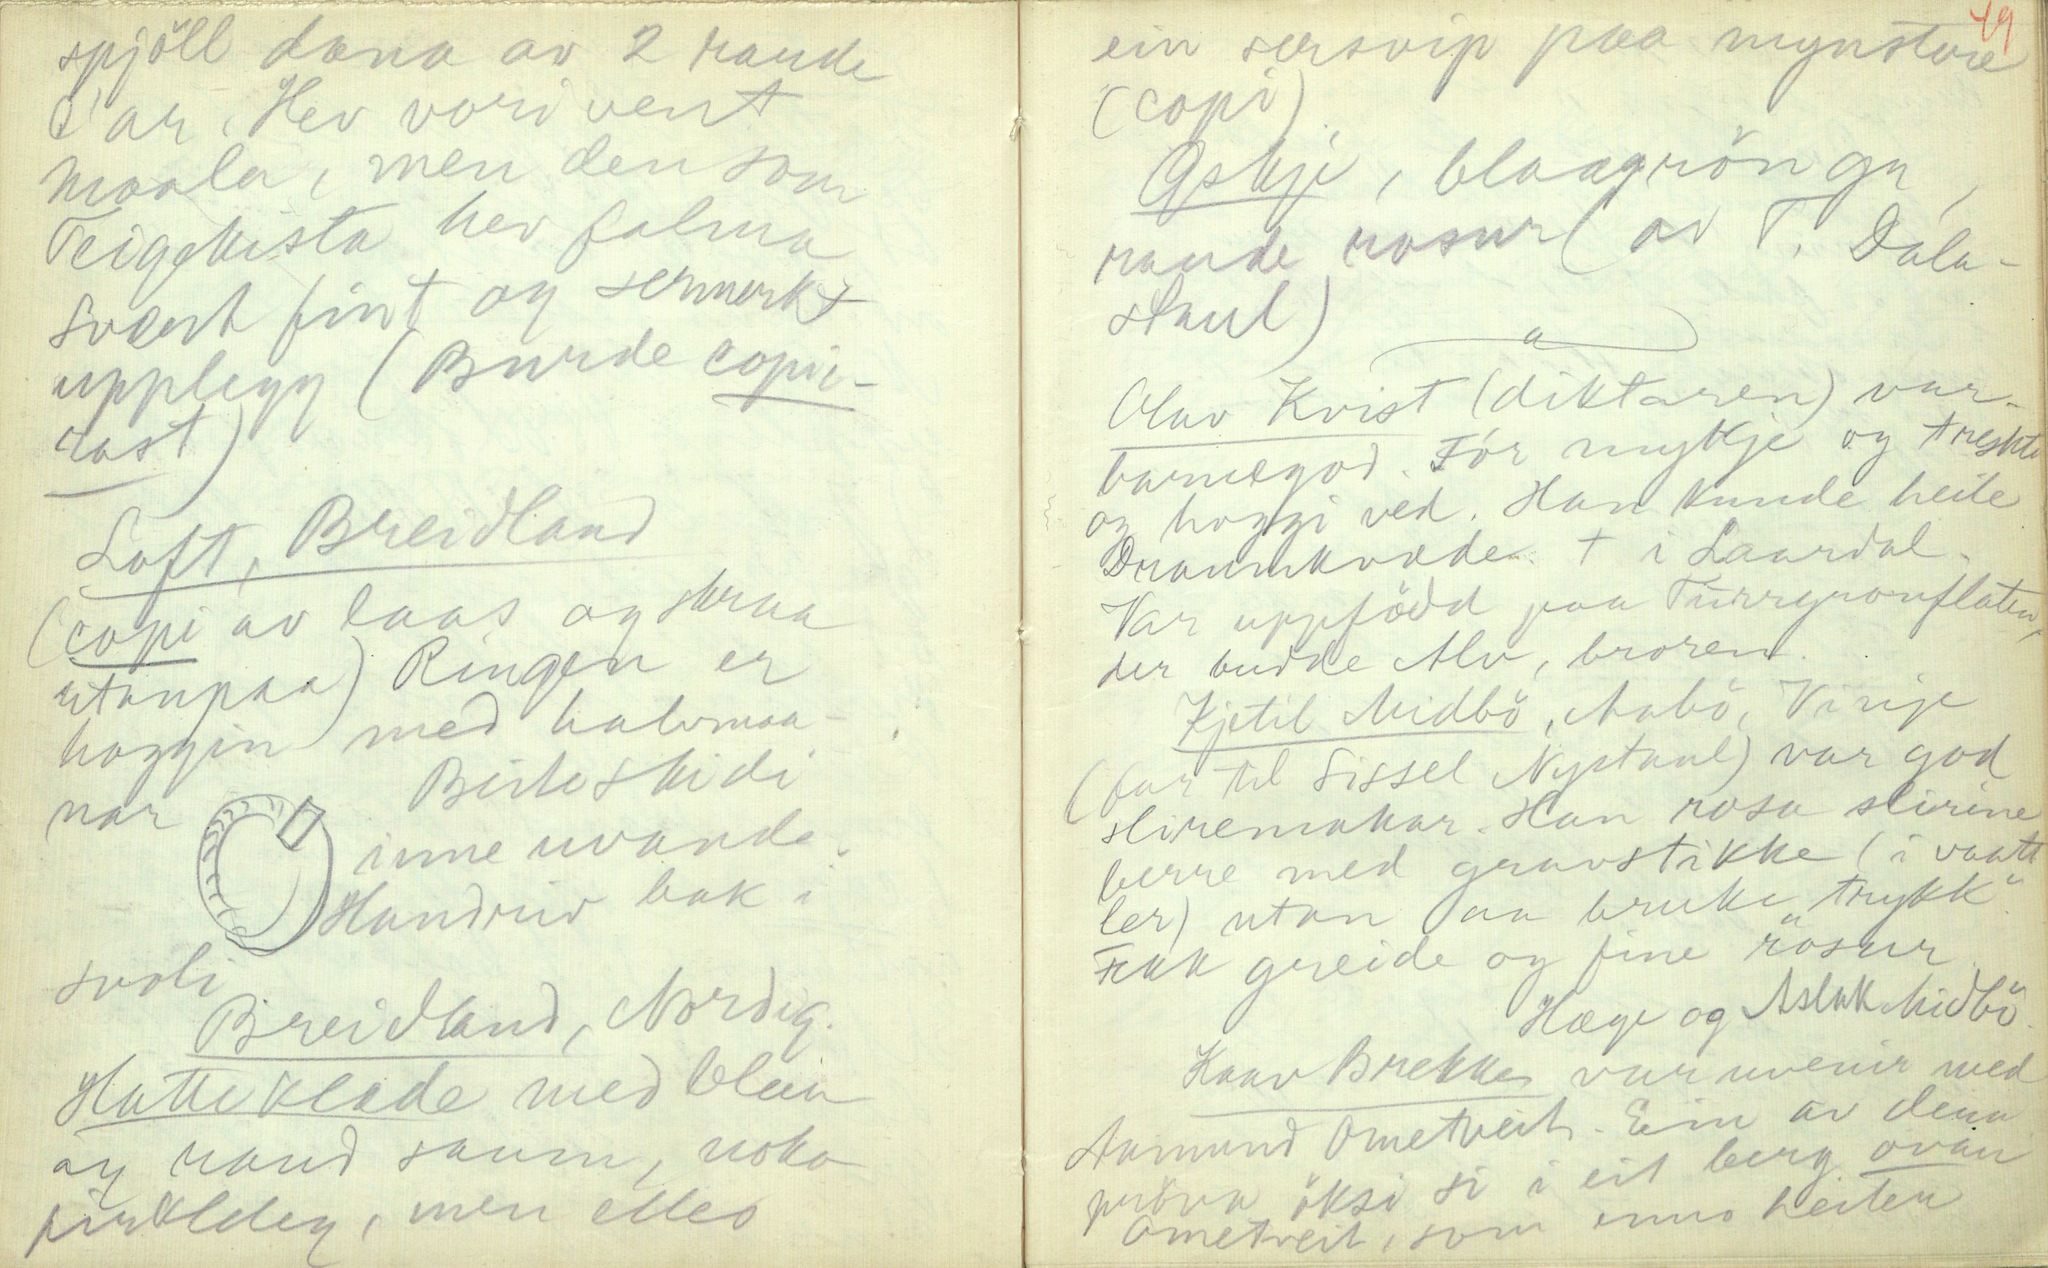 spjöll dana av 2 raude
C'ar. Hev vori vent
maala, men den som
Teigekista hev falma
svært fint og sermerkt
upplegg (Burde copie-
rast)
Loft, Breidland
(copi av laas og skraa
utanpaa) Ringen er
hoggin med halvmaa-
nar Beiteskidi
inne uvande.
Handriv bak i
svoli
Breidland, Nordig.
Hatteklade med blaa
og raud saum, noko
firkldeg, men elles
49
ein sersvip paa mynstre
(copi)
Øskje, blaagrön gr,
raude rosur (av T. Dala-
staul)
Olav Kvist (diktaren) var
barnegod. För mykje og treskte
og hoggi ved. Han kunde heile
Draumkvæde. † i Laardal.
Var uppfödd paa Turrgronflaten,
der budde Alv, broren.
Kjetil Midbö, Aabö, Vinje
(far til Sissel Nystaul) var god
sliremakar. Han rosa slirine
berre med gravstikke (i vaatt
ler) utan aa bruke "trykk".
Fekk greide og fine rosur
Hæge og Aslak Midbö.
Knav Brekke var uvenir med
Aamund Ometveit. Ein av deim
pröva öksi si i eit berg ovan
Ometveit, som enno heiter